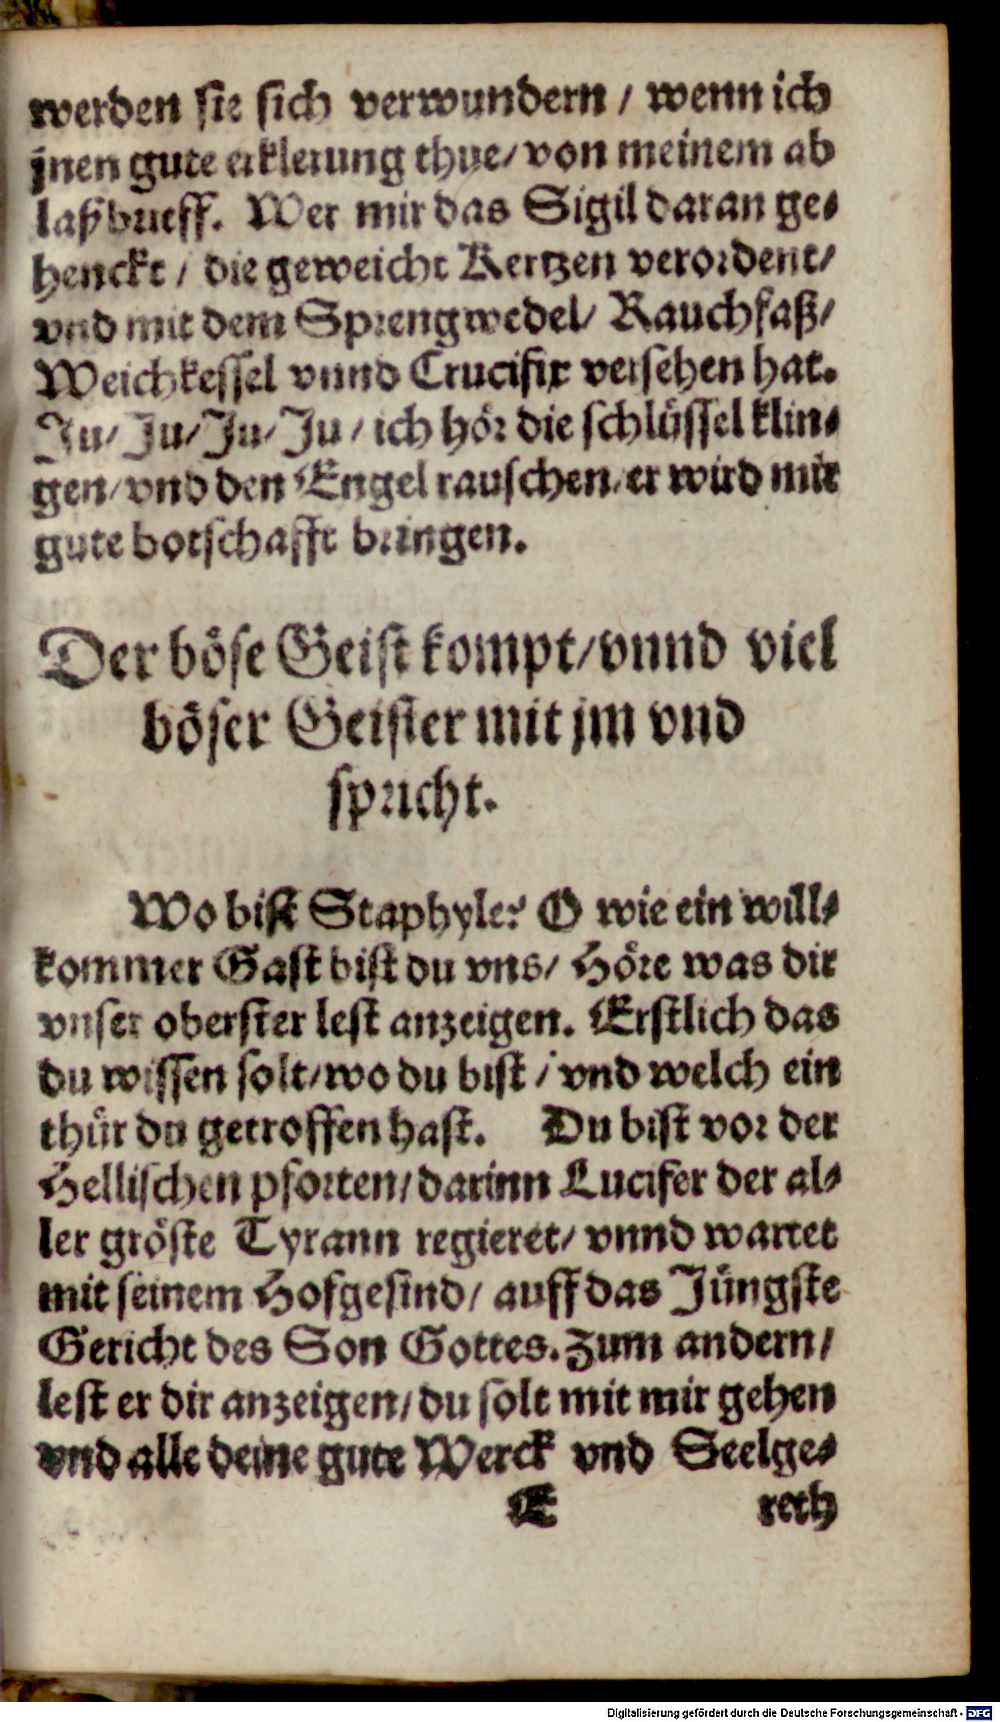 werden sie sich verwundern / wenn ich
jnen gute erklerung thue/ von meinem ab
laßbrieff. Wer mir das Sigil daran ge⸗
henckt / die geweicht Kertzen verordent/
vnd mit dem Sprengwedel/ Rauchfaß/
Weichkessel vnnd Crucifix versehen hat.
Ju/ Ju/ Ju/ Ju / ich hör die schlüssel klin⸗
gen/ vnd den Engel rauschen/ er wird mir
gute botschafft bringen.
Der böse Geist kompt/ vnnd viel
böser Geister mit jm vnd
spricht.
Wo bist Staphyle? O wie ein will⸗
kommer Gast bist du vns/ Höre was dir
vnser oberster lest anzeigen. Erstlich das
du wissen solt/ wo du bist / vnd welch ein
thür du getroffen hast. Du bist vor der
Hellischen pforten/ darinn Lucifer der al⸗
ler gröste Tyrann regieret/ vnnd wartet
mit seinem Hofgesind/ auff das Jüngste
Gericht des Son Gottes. Zum andern/
lest er dir anzeigen/ du solt mit mir gehen
vnd alle deine gute Werck vnd Seelge⸗
E reth
Digitalisierung gefördert durch die Deutsche Forschungsgemeinschaft - DFG